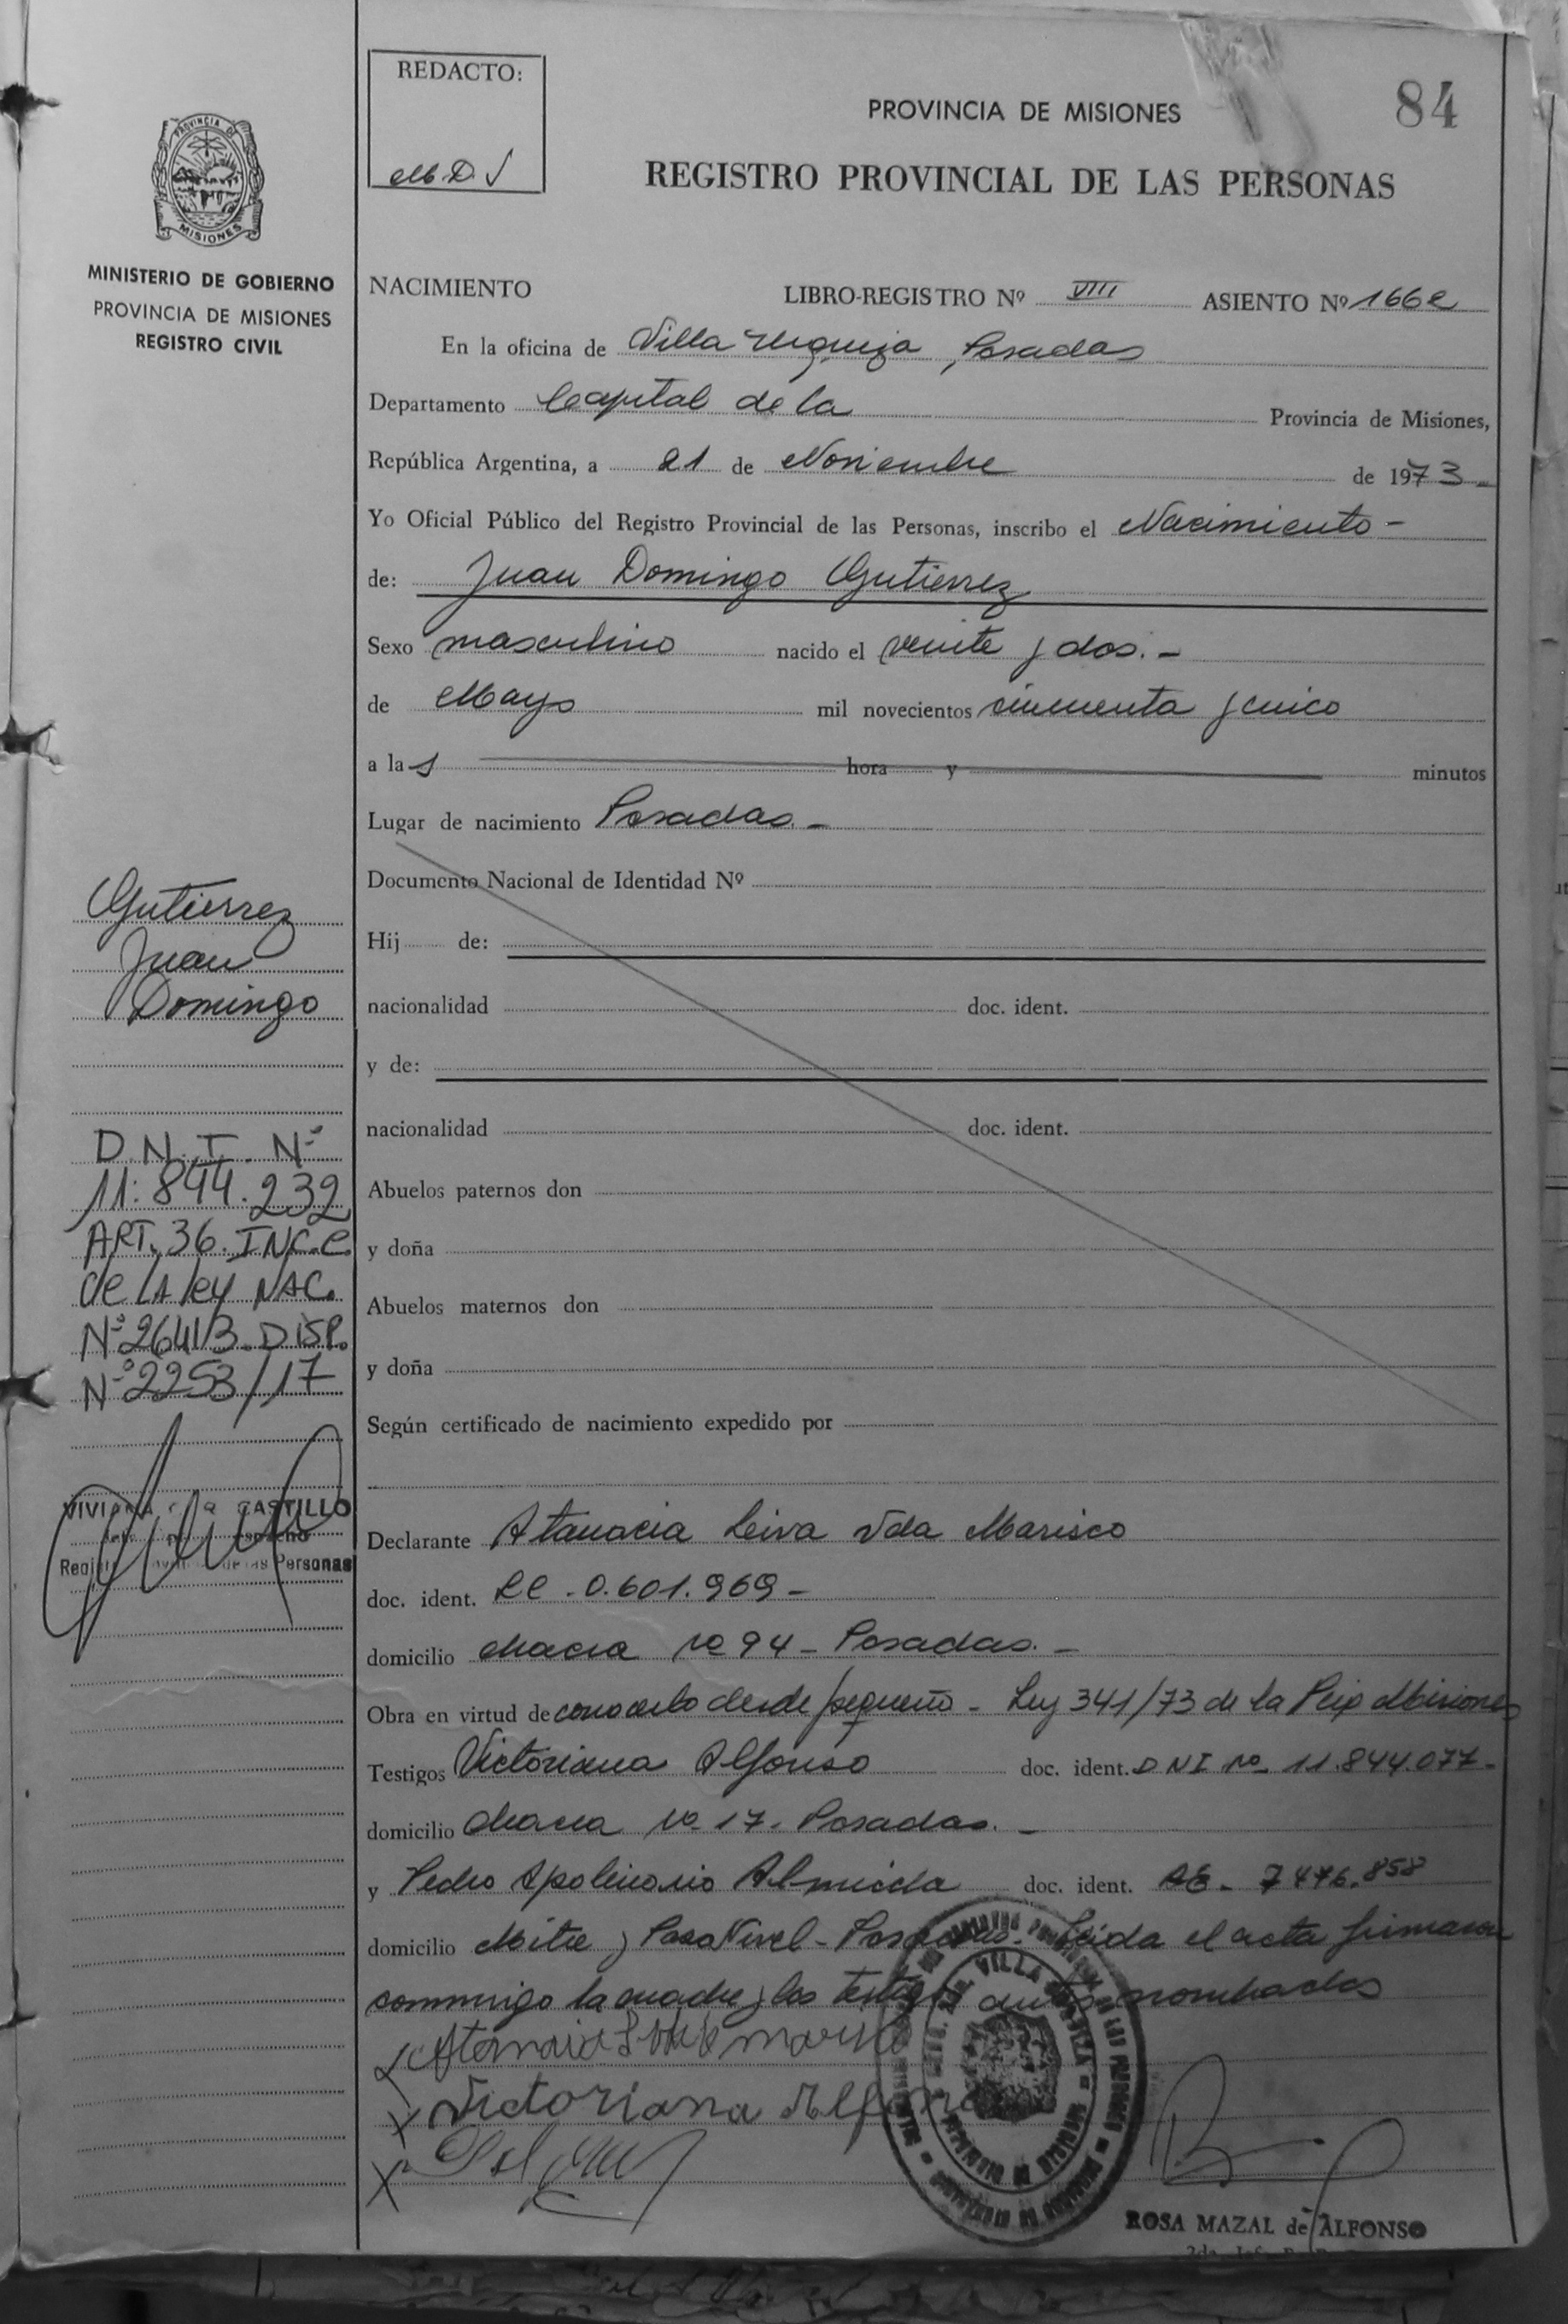 REDACTO:
PROVINCIA DE MISIONES
84
REGISTRO PROVINCIAL DE LAS PERSONAS
PROVINCIA DE
MISIONES
MINISTERIO DE GOBIERNO
PROVINCIA DE MISIONES
REGISTRO CIVIL
NACIMIENTO LIBRO-REGISTRO Nº VIII ASIENTO Nº 1662
En la oficina de Villa Urquiza, Posadas
Departamento Capital de la Provincia de Misiones,
República Argentina, a 21 de Noviembre de 1973.-
Yo Oficial Público del Registro Provincial de las Personas, inscribo el Nacimiento -
de: Juan Domingo Gutierrez
Sexo masculino nacido el veinte y dos.-
de Mayo mil novecientos cincuenta y cinco
a las hora y minutos
Lugar de nacimiento Posadas.-
Documento Nacional de Identidad Nº
Hij de:
nacionalidad doc. ident.
y de:
nacionalidad doc. ident.
Abuelos paternos don
y doña
Abuelos maternos don
y doña
Según certificado de nacimiento expedido por
Declarante Atanacia Leiva Vda Marisco
doc. ident. LC - 0.601.969 -
domicilio chacra nº 94 - Posadas.-
Obra en virtud de conocerlo desde pequeño - Ley 341/73 de la Misiones
Testigos Victoriana Alfonso doc. ident. DNI nº 11.844.077-
domicilio chacra nº 17. Posadas.-
y Pedro Apolinario Almida doc. ident. 7476.858
domicilio Mitre y Paso Nivel - Posadas. Leida el acta firmaron
conmigo la madre y los testigos
Victoriana Alfonso
ROSA MAZAL de ALFONSO
Gutierrez
Juan
Domingo
D.N.I. Nº
11.844.232
ART. 36. INC. C.
de LA ley NAC.
Nº 26413. DISP.
Nº 2253/17
CASTILLO
Personas
VILLA